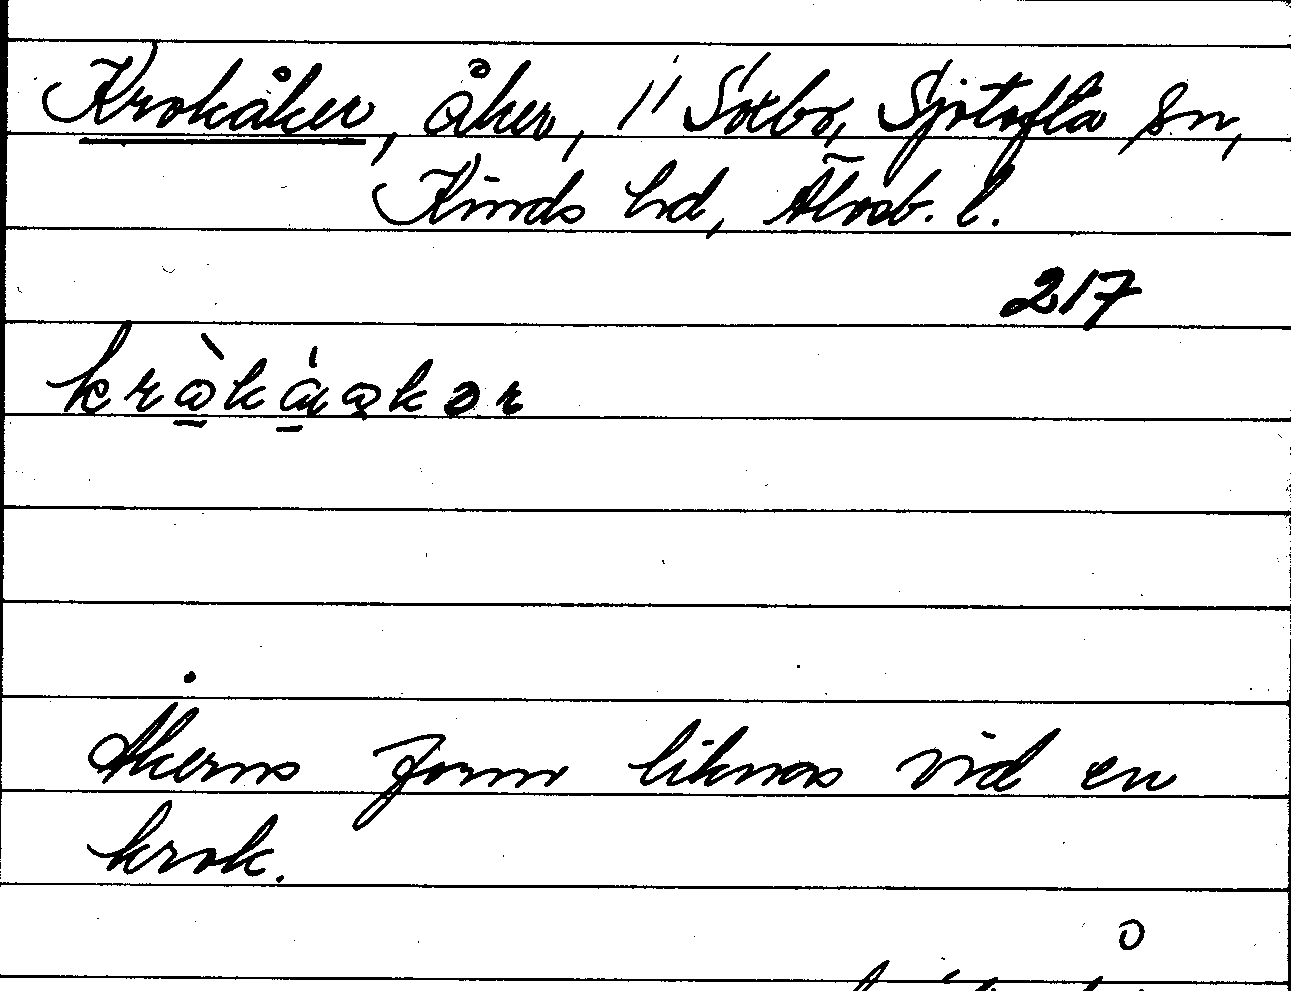 Krokåker, åker, i Sötbo, Sjötofta sn,
Kinds hd, Älvsb. l.
217
Åkerns form liknas vid en
krok.